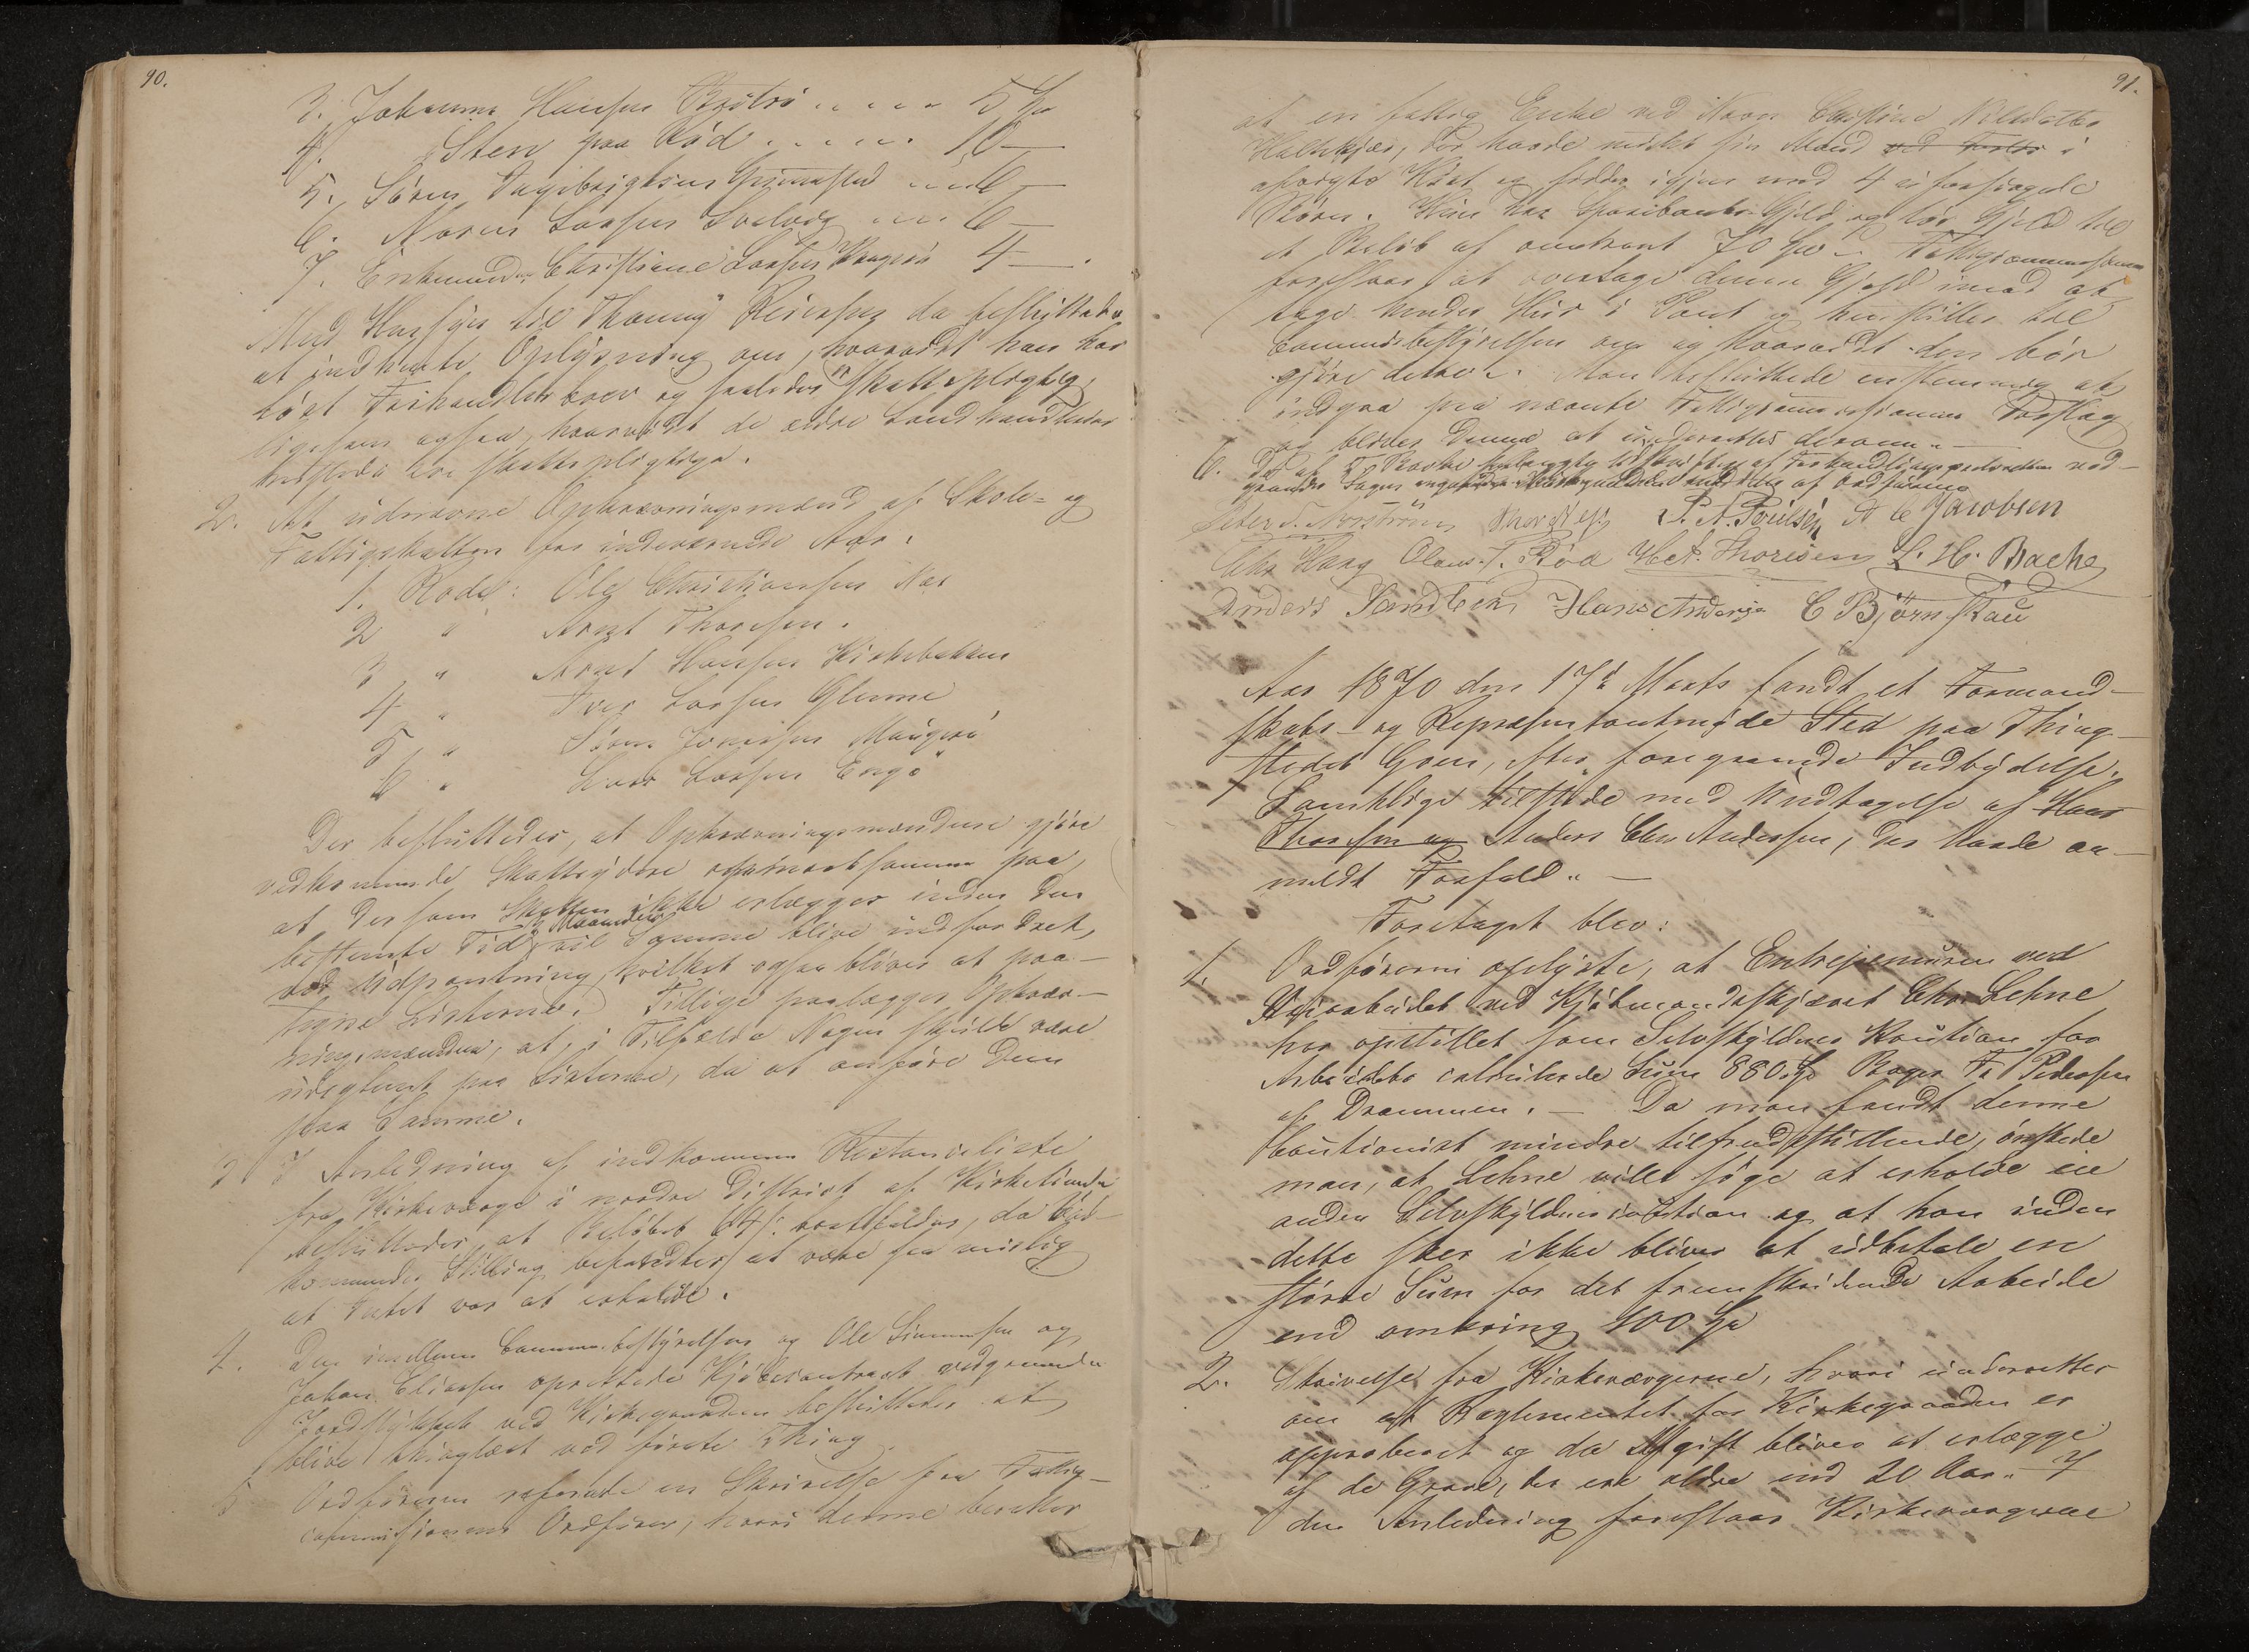 90.
3. Johannes Hansen Brötsö .. .. .. 5 Spd
4. Sten paa Rød .. .. .. 10 —
5. Søren Ingebrigtsen Grimestad .. .. 6 —
6. Maren Larsen Solvang .. .. 6 —
7. Enkemadm Christiane Larsen Haugerö 4 — .
Med Hensyn til Thommy Reiersen da besluttedes
at indhente Oplysning om, hvorvidt han har
løst Forhandlerbrev og saaledes er skattepligtig,
ligesom ogsaa, hvorvidt de ældre Landhandlere
ere skattepligtige.
2. At udnævne Opkrævningsmænd af Skole- og
Fattigskatten for indeværende Aar.
1. Rode: Ole Christiansen Næs
2 " Arnt Thoresen.
3 " Arnt Hansen Kirkebakken
4 " Iver Larsen Glomme
5 " Søren Jonassen Maugerö
6 " Lars Larsen Engö
Der besluttedes, at Opkrævningsmændene gjøre
vedkommende Skatteydere opmærksomme paa,
at dersom Skatten ikke erlægges inden den
bestemte Tid, vil Samme blive indfordret,
ved Udpantning, hvilket ogsaa bliver at paa-
tegne Listerne. Tillige paalægges Opkræv-
ningsmændene, at, i Tilfælde Nogen skulde være
udeglemt paa Listerne, da at anføre dem
paa Samme.
3 I Anledning af indkommen Restanceliste
fra Kirkeværge i nordre District af Kirketiende
besluttedes, at Beløbet 64 ß. , da Ved-
kommendes Stilling befandtes at være saa mislig
at Intet var at erholde.
4. Den imellem Communebestyrelsen og Ole Simensen og
Johan Eliassen oprettede Kjøbecontract vedgaaende
Jordstykket ved Kirkegaarden besluttedes at
blive thinglæst ved første Thing
5 Ordføreren refererede en Skrivelse fra Fattig-
commissionens Ordfører, hvori denne beretter
91.
at en fattig Enke ved Navn Christine Nilsdatter
Holtekjær, der havde mistet sin Mand ved Forlis i
afvigte Høst og sidder igjen med 4 uforsørgede
Børn. Hun har Sparebanks Gjeld og løs Gjeld til
et Beløb af omtrent 70 Spd. Fattigcommissionen
foreslaar, at overtage denne Gjeld imod at
tage hendes Huus i Pant og henstiller til
Communebestyrelsen om og hvorvidt den bør
gjøre dette. Man besluttede enstemmig at
indgaa paa nævnte Fattigcommissionens Forslag
og bliver denne at underrettes derom. —
6. Det af T. Bache forlangte Udskrift af Forhandlingsprotocollen ved-
gaaende Sagen angaaende Kirkegaarden af Ordføreren
Peter S. Norström P. A. Poulsen A C Jacobsen
Chr. Haug Olaus T. Rød Hct. Thoresen L. H. Bache
Anders Sandbek Hans Andersen C Björnskau
Aar 1870 den 17de Marts fandt et Formand-
skabs- og Repræsentantmøde Sted paa Thing-
stedet Goen, efter foregaaende Indbydelse.
Samtlige tilstede med Undtagelse af Hans
Thoresen og Anders Chr Andersen, der havde an-
meldt Forfald. —
Foretaget blev:
1. Ordføreren oplyste, at Entrepreneuren ved
Veiarbeidet ved Kjøbmandsskjæret Chr. Lehne
har opstillet som Selvskyldner Kaution for
Arbeidets calculerede Sum 880 Spd Bager Fr. Pedersen
af Drammen. — Da man fandt denne
Cautionist mindre tilfredsstillende, ønskede
man, at Lehne vilde søge at erholde en
anden Selvskyldnercaution og at han inden
dette sker ikke bliver at udbetale en
større Sum for det fremskridende Arbeide
end omkring 100 Spd
2. Skrivelse fra Kirkeværgerne, hvori underretter
om at Reglementet for Kirkegaarden er
approberet og da Afgift bliver at erlægge
af de Grave, der ere ældre end 20 Aar. I
den Anledning foreslaar Kirkeværgerne